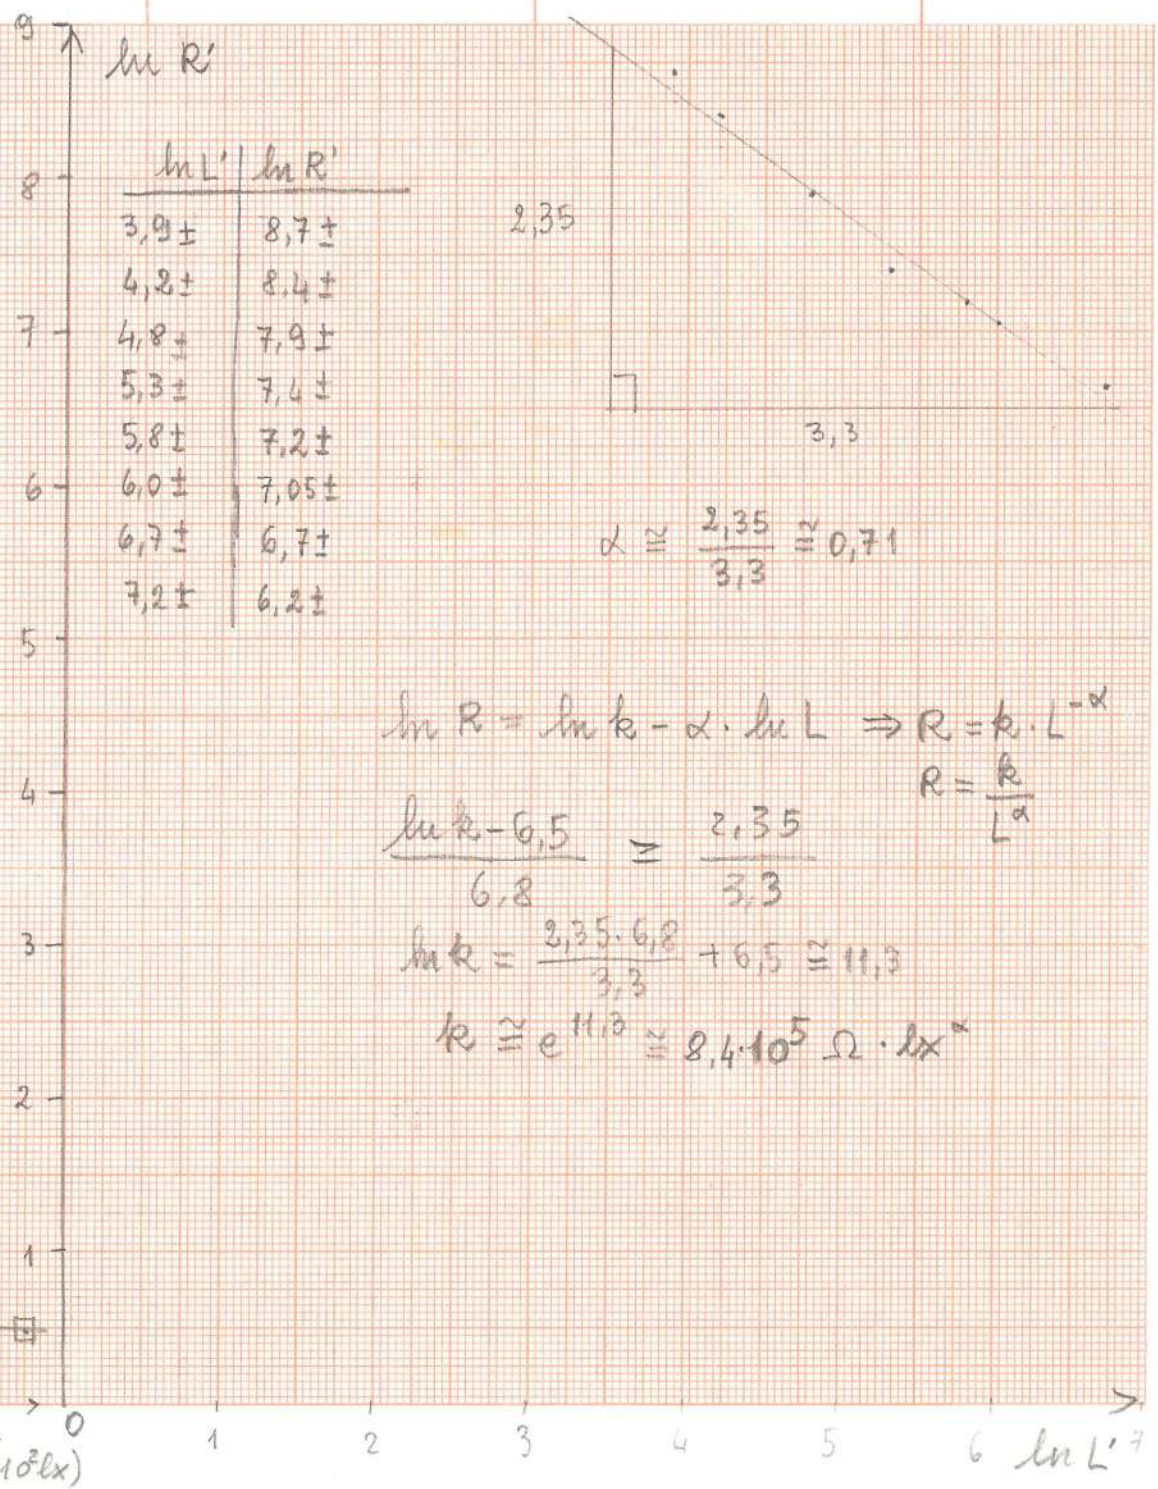 9
ln R'
ln L' | ln R'
3,9 ± | 8,7 ±
4,2 ± | 8,4 ±
4,8 ± | 7,9 ±
5,3 ± | 7,4 ±
5,8 ± | 7,2 ±
6,0 ± | 7,05 ±
6,7 ± | 6,7 ±
7,2 ± | 6,2 ±
8
7
6
5
4
3
2
1
2,35
3,3
α ≅ 2,35/3,3 ≅ 0,71
ln R = ln k - α · ln L ⇒ R = k · L^-α
R = k/L^α
(ln k - 6,5)/6,8 = 2,35/3,3
ln k = (2,35 · 6,8)/3,3 + 6,5 ≅ 11,3
k ≅ e^11,3 ≅ 8,4·10^5 Ω · lx^α
0 1 2 3 4 5 6 ln L' 7
10² lx)